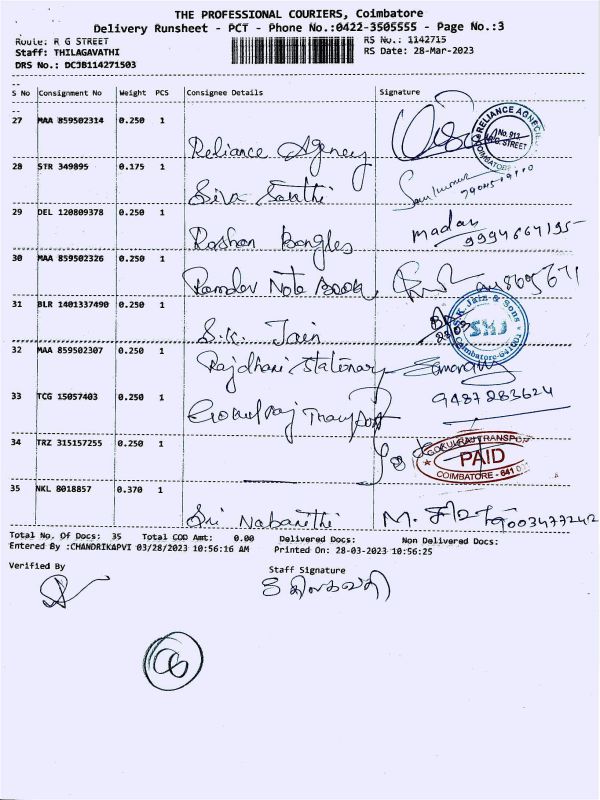 THE PROFESSIONAL COURIERS, Coimbatore
Delivery Runsheet - PCT - Phone No.:0422-3505555 - Page No.:3
Route: R G STREET
RS No.: 1142715
Staff: THILAGAVATHI
RS Date: 28-Mar-2023
DRS No.: DCJB114271503
S No Consignment No Weight PCS Consignee Details Signature
27 MAA 859502314 0.250 1
Reliance Agency
RELIANCE AGENCIES No. 913 R.G. STREET COIMBATORE
28 STR 349895 0.175 1
Siva Santhi
29 DEL 120809378 0.250 1
Roshan Bangles madan 9994667195
30 MAA 859502326 0.250 1
Ramdev Note Book
31 BLR 1401337490 0.250 1
S.K. Jain
S.K. Jain & Sons SMJ Coimbatore-641001
32 MAA 859502307 0.250 1
Rajdhani Stationary
33 TCG 15057403 0.250 1
9487283624
Gokulraj Transport
34 TRZ 315157255 0.250 1
GOKULRAJ TRANSPORT PAID COIMBATORE - 641 001
35 NKL 8018857 0.370 1
Sri Nabanithi M. 9003477242
Total No. Of Docs: 35 Total COD Amt: 0.00 Delivered Docs: Non Delivered Docs:
Entered By :CHANDRIKAPVI 03/28/2023 10:56:16 AM Printed On: 28-03-2023 10:56:25
Verified By Staff Signature